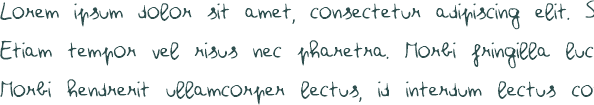 Lorem ipsum dolor sit amet, consectetur adipiscing elit. S
Etiam tempor vel risus nec pharetra. Morbi fringilla luc
Morbi hendrerit ullamcorper lectus, id interdum lectus co